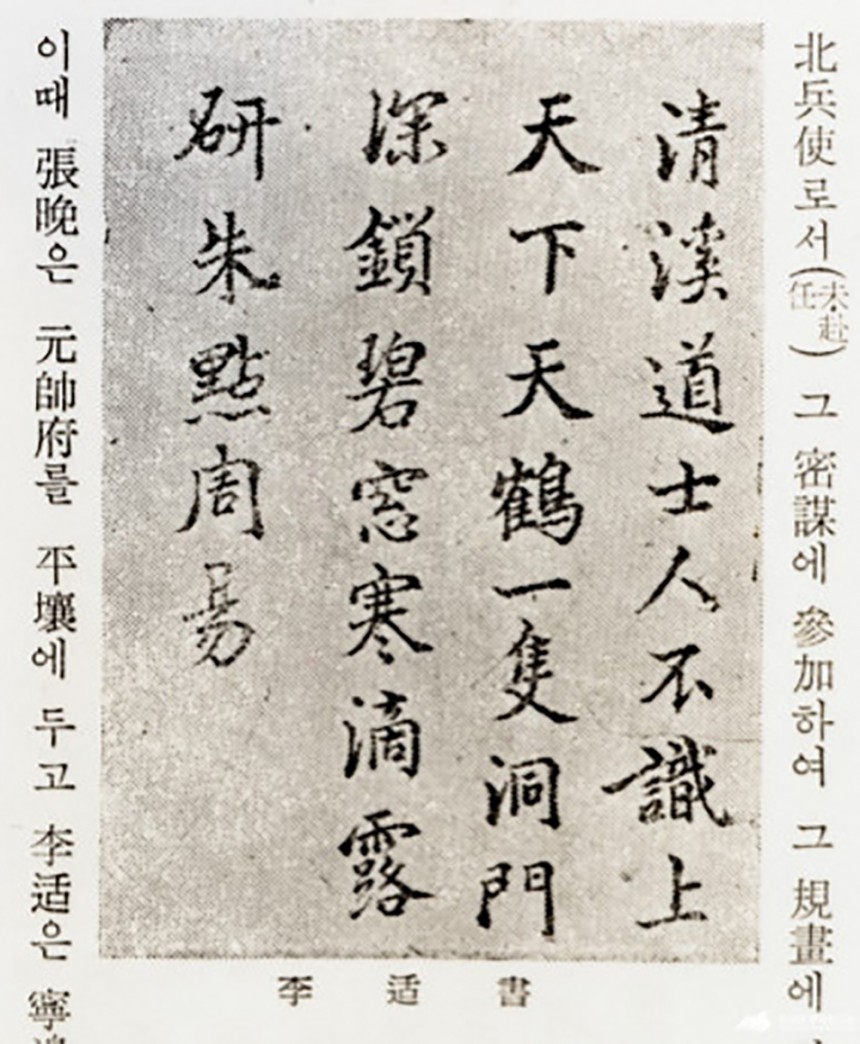 北兵使로서(未赴任) 그 密謀에 參加하여 그 規畫에
清溪道士人不識上
天下天鶴一隻洞門
深鎖碧窓寒滴露
硏朱點周易
李适書
이때 張晩은 元帥府를 平壤에 두고 李适은 寧